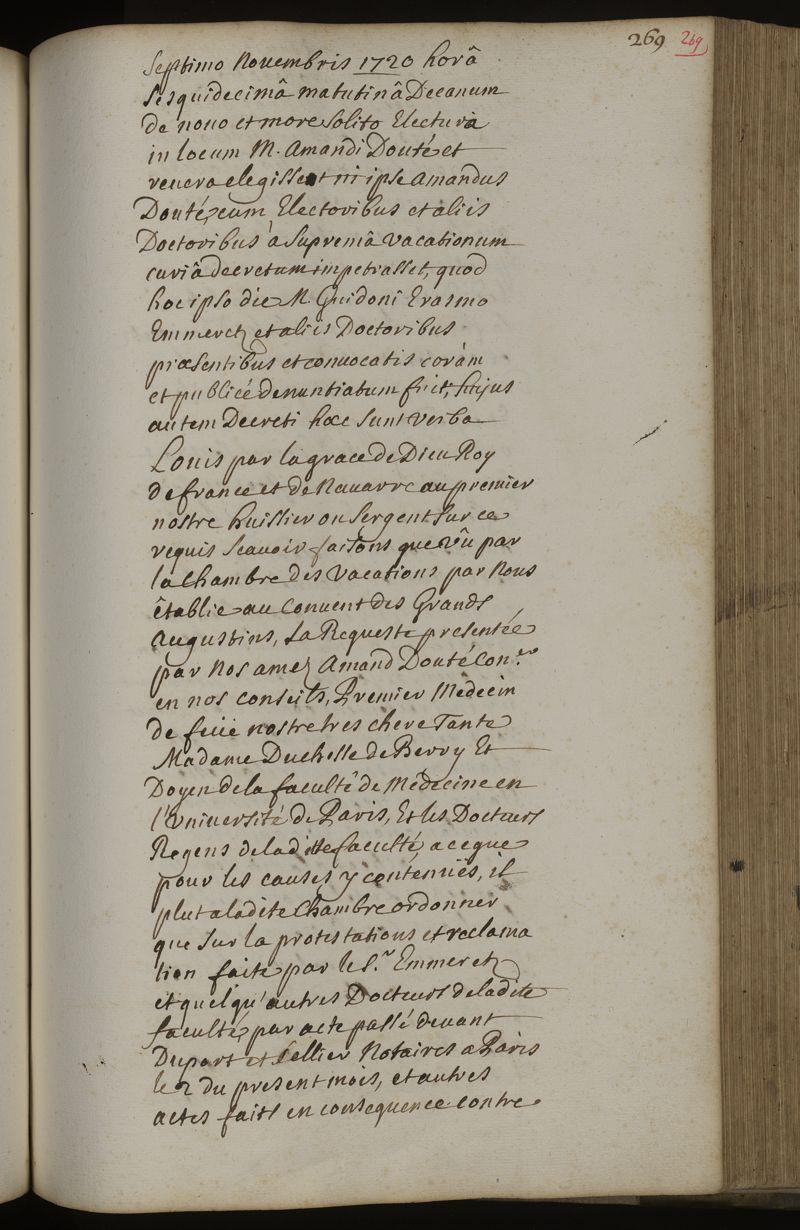 269 269
Septimo Novembris 1720 horâ
sesquidecimâ matutinâ Decanum
de novo et more solito Electura
in locum M. Amandi Douté et
revera elegisset ni ipse Amandus
Douté, cum Electoribus et aliis
Doctoribus a supremâ vacationum
curiâ decretum impetrasset, quod
hoc ipso die M. Guidoni Erasmo
Emmerez et aliis Doctoribus
præsentibus et convocatis coràm
et publicé denuntiatum fuit, hujus
autem Decreti hæc sunt verba
Louis par la grace de Dieu Roy
de france et de Navarre au premier
nostre huissier ou sergent sur ce
requis scavoir faisons que vû par
la Chambre des Vacations par Nous
êtablie au Convent des Grands
Augustins, La Requeste presentée
par Nos amez Amand Douté Con.er
en nos conseils, Premier Medecin
de feüe nostre tres chere Tante
Madame Duchesse de Berry Et
Doyen de la faculté de Medecine en
l'Université de Paris, Et les Docteurs
Regens de laditte faculté, a ce que
pour les causes y contenües, il
plut a ladite Chambre ordonner
que sur la protestations et reclama
tion faite par le S.r Emmerez
et quelqu'autres Docteurs de ladite
faculté, par acte passé devant
Duport et Tellier Notaires a Paris
le 2 du present mois, et autres
actes faits en consequence contre